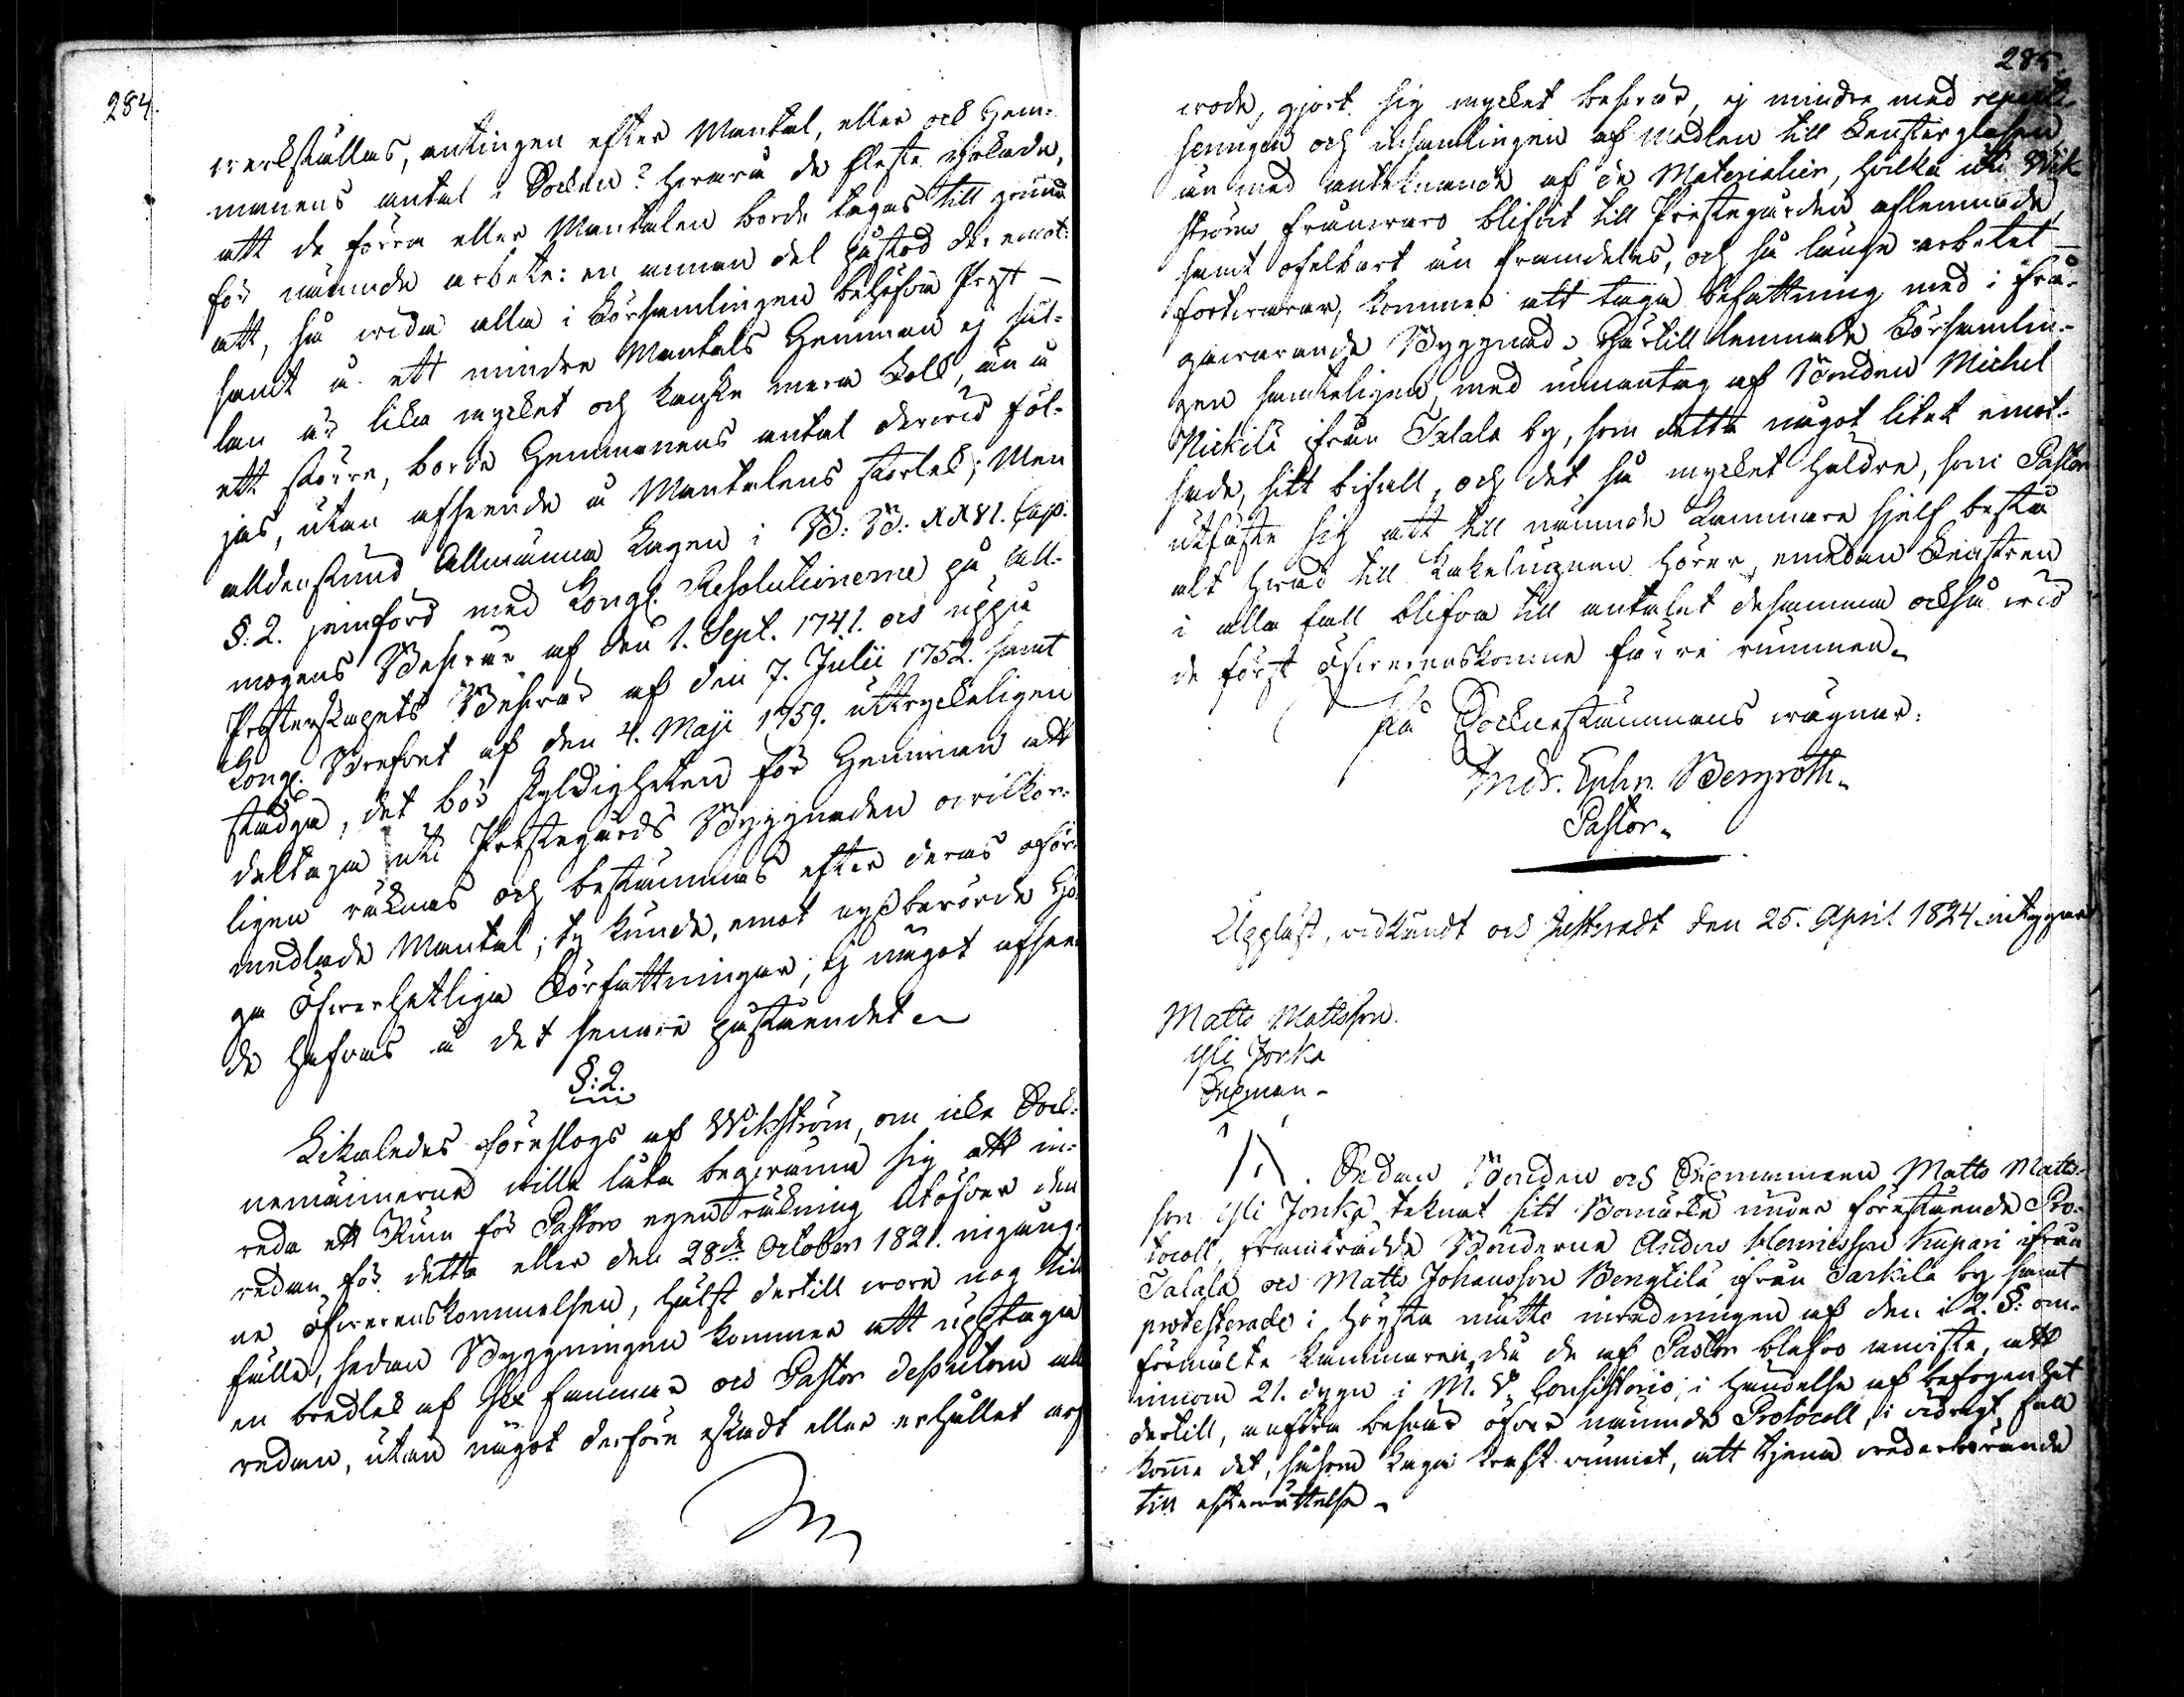 284.
verkställas, antingen efter Mantal, eller ock Hem-
manens antal i Socknen? hvarå de fleste yrkade,
att de förra eller Mantalen borde tagas till grund
för nämnde arbete: en annan del påstod deremot:
att, så vida alla i Församlingen behöfva Prest —
samt å ett mindre Mantals Hemman ej säl-
lan är lika mycket och kanske mera Folk, än å
ett större, borde Hemmanens antal dervid föl-
jas, utan afseende å Mantalens storlek; Men
alldenstund Allmänna Lagen i B: B: XXVI. Cap.
§: 2. jemförd med Kongl. Resolutionerne på All-
mogens Besvär af den 1. Sept. 1741. och uppå
Presterskapets Besvär af den 7. Julii 1752. samt
Kongl. Brefvet af den 4. Maji 1759. uttryckeligen
stadga, det bör skyldigheten för Hemman att
deltaga uti Prestegårds Byggnaden ovilkor-
ligen räknas och bestämmas efter deras oför-
medlade Mantal; ty kunde, emot nyssberörde Hö-
ga Öfverhetliga Författningar, ej något afseen-
de hafvas å det senare påståendet.
§: 2.
Likaledes föreslogs af Wikström, om icke Sock-
nemännerna ville låta begvämma sig att in-
reda ett Rum för Pastors egen räkning utöfver den
redan för detta eller den 28de October 1821. ingång-
ne Öfverenskommelsen, hälst dertill vore nog till-
fälle, sedan Byggningen kommer att upptaga
en bredlek af sex famnar och Pastor dessutom all-
redan, utan något derföre åstadt eller erhållet arf-
285.
vode, gjort sig mycket besvär, ej mindre med reparti-
seringen och insamlingen af medlen till Fensterglasen
än med antecknande af de Materialier, hvilka uti Wik-
ströms frånvaro blifvit till Prestegården aflemnade,
samt ofelbart än framdeles, och så länge arbetet —
fortvarar, kommer att taga befattning med i frå-
gavarande Byggnad. Härtill lemnade Församlin-
gen samteligen, med undantag af Bonden Michel
Nickilä ifrån Talala by, som detta något litet emot-
sade, sitt bifall, och det så mycket heldre, som Pastor
utfäste sig att till nämnde Kammare sjelf bestå
alt hvad till Kakelugnen hörer, emedan Fenstren
i alla fall blifva till antalet desamma också vid
de först öfverenskomne färre rummen.
På Sockenstämmans vägnar:
Andr. Ephr. Bergroth.
Pastor.
Uppläst, vidkändt och justeradt den 25. April 1824. intygar
Matts Mattsson
Yli Jonka
Sexman.
Sedan Bonden och Sexmannen Matts Matts-
son Yli Jonka teknat sitt Bomärke under förestående Pro-
tocoll, framträdde Bönderne Anders Henricsson Kupari ifrån
Talala och Matts Johansson Bengtilä ifrån Sarkila by samt
protesterade i högsta måtto inredningen af den i 2. §: om-
förmälte Kammaren, då de af Pastor blefvo anviste, att
innom 21. dygn i M. V. Consistorio, i händelse af befogenhet
dertill, anföra besvär öfver nämnde Protocoll, i vidrigt fall
komme det, såsom Laga kraft vunnit, att tjena vederbörande
till efterrättelse.